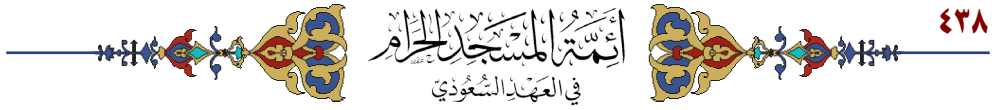 ٤٣٨
أَئِمَّةُ المَسْجِدِ الحَرَامِ
فِي العَهْدِ السُّعُودِيّ